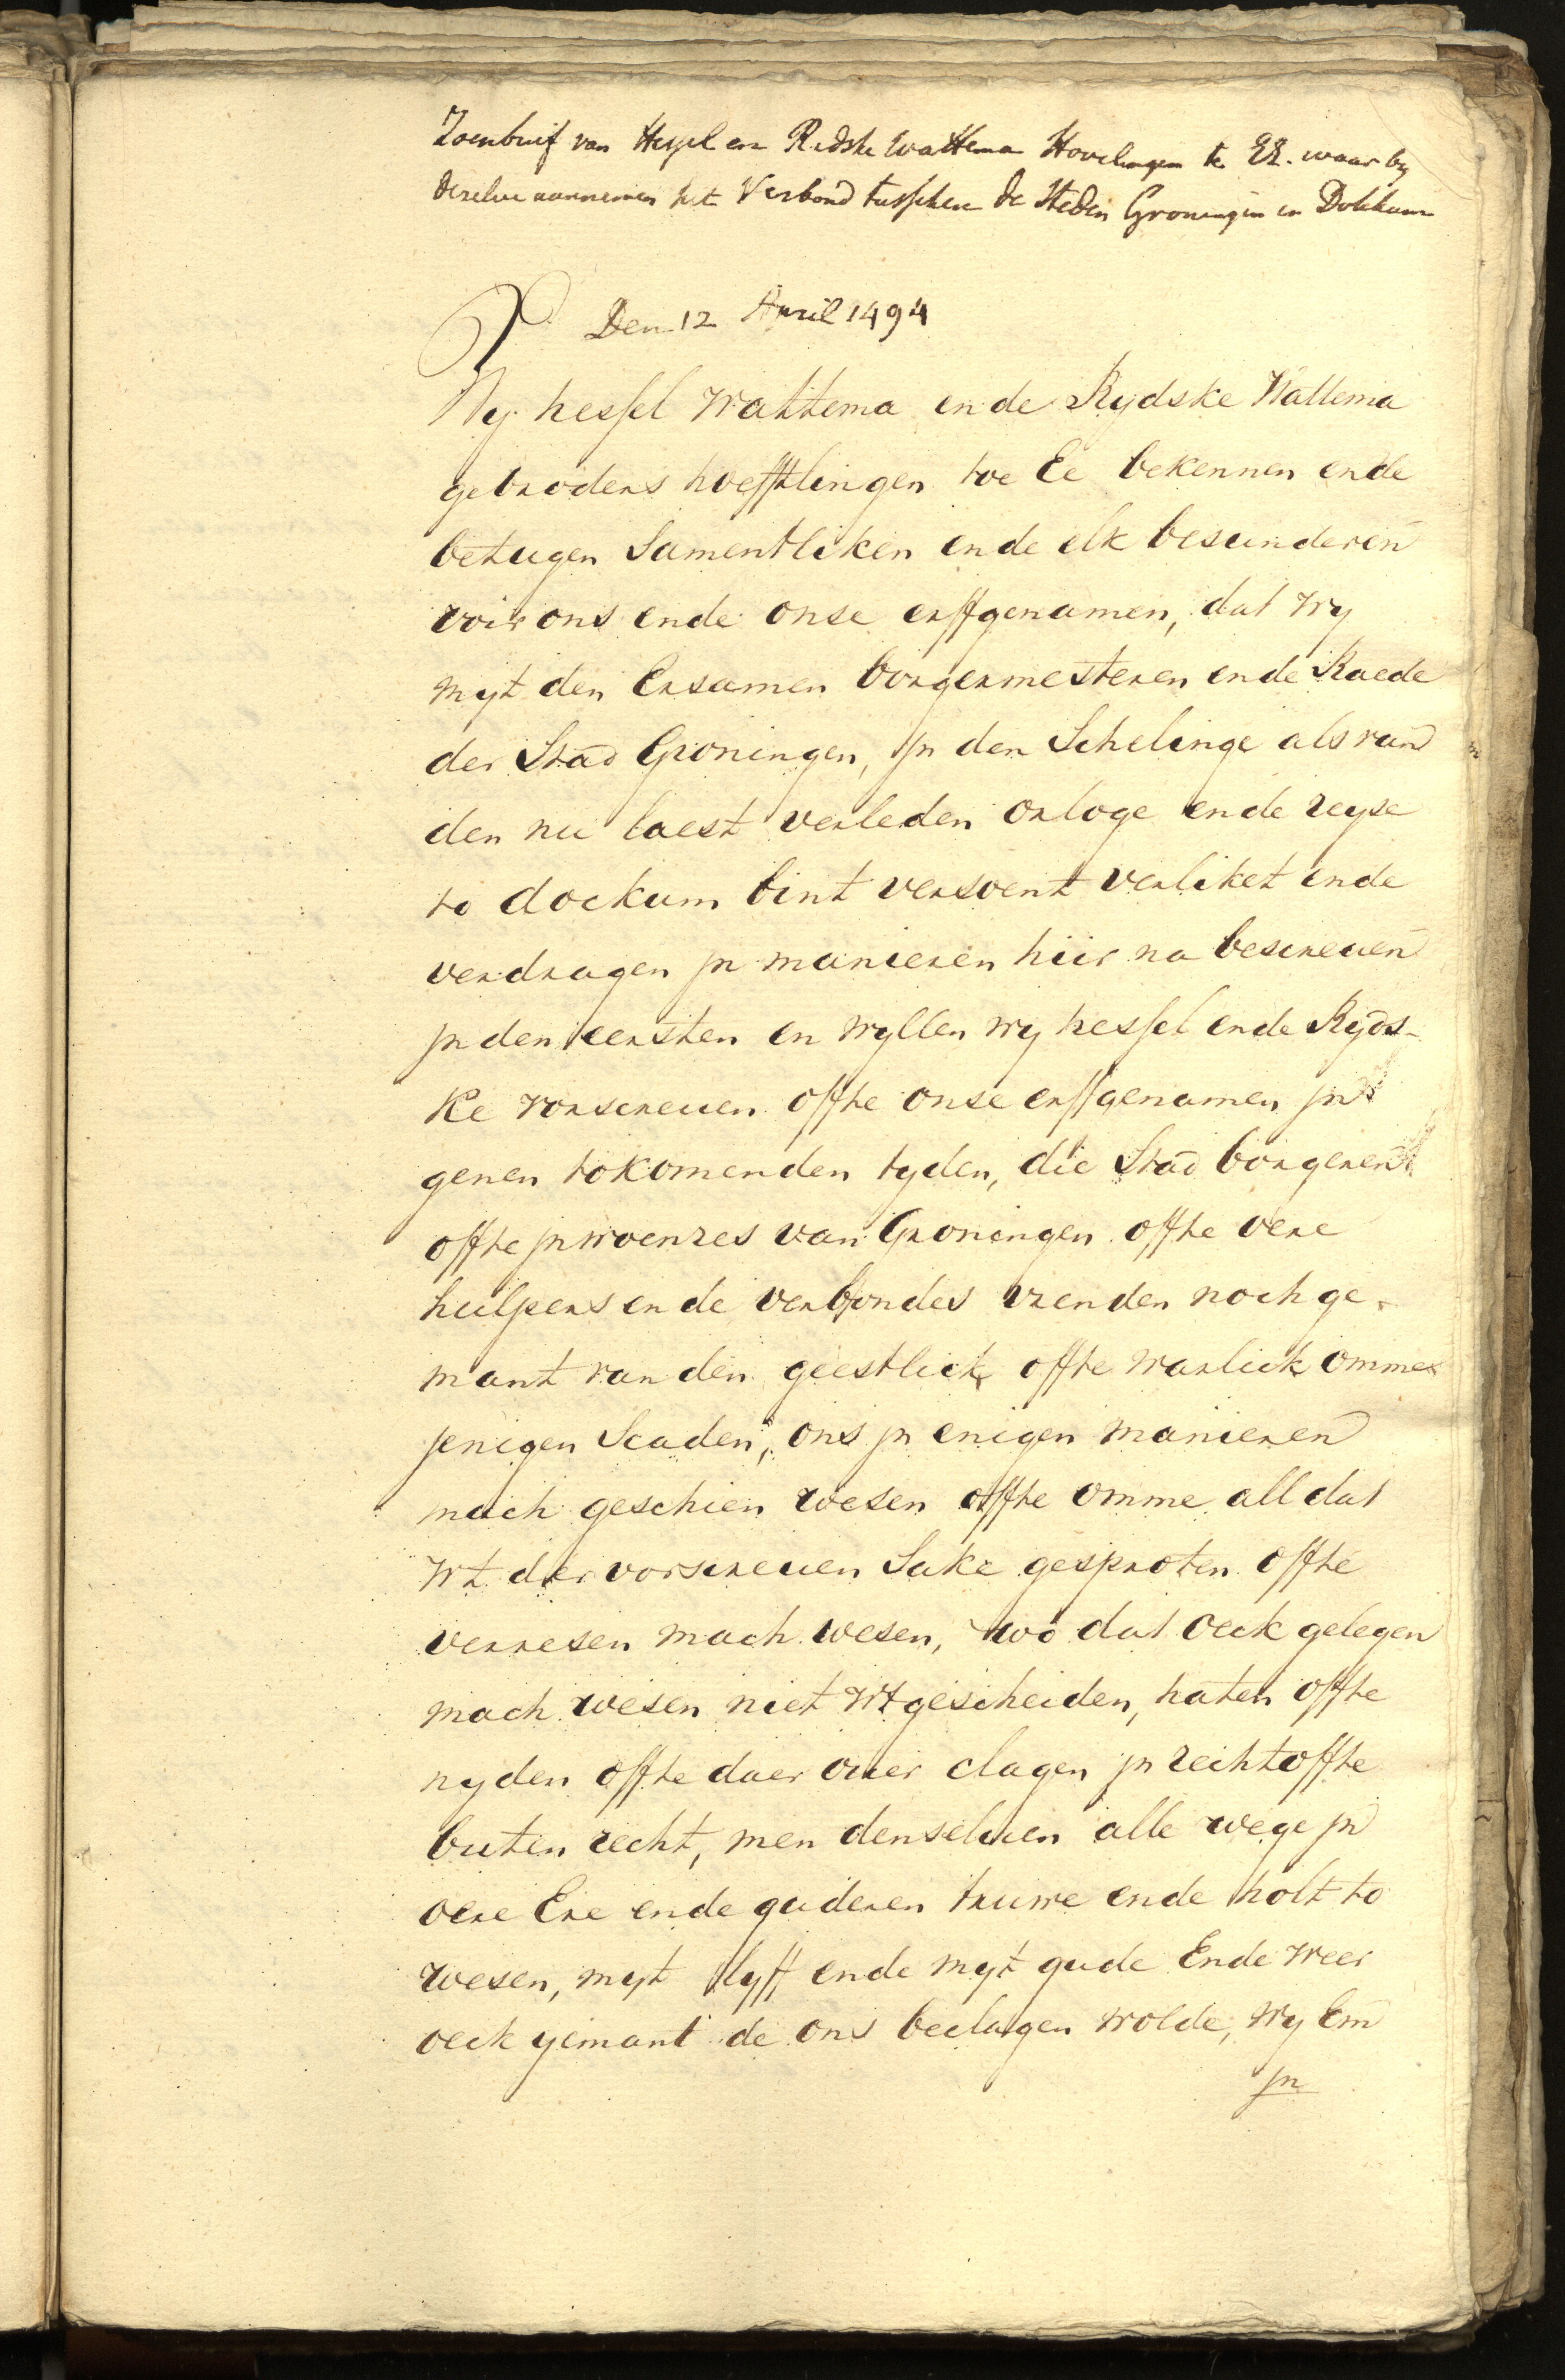 Zoenbrief van Hessel en Ridske Wattema Hovelingen te EE. waar by
dezelve aannemen het Verbond tusschen de Steden Groningen en Dokkum
Den 12 April 1494
Wy hessel Wattema ende Rydske Wattema
gebroders hoefftlingen toe Ee bekennen ende
betugen Samentliken ende elk besunderen
voir ons ende onse erffgenamen, dat wy
myt den Ersamen borgermesteren ende Raede
der Stad Groningen, jn den Schelinge als van
den nu laest verleden orloge ende reyse
to dockum bint versoent verliket ende
verdragen jn manieren hiir na bescreuen
jn den eersten en wyllen wy hessel ende Ryds-
ke vorscreuen offte onse erffgenamen jn
genen tokomenden tyden, die Stad borgeren
offte jnwoenres van Groningen offte oere
hulpers ende verbondes vrenden noch ge-
mant van den geestlick offte warlick omme
jenigen Scaden, ons jn enigen manieren
mach geschien wesen offte omme all dat
wt der vorscreuen Sake gesproten offte
verresen mach wesen, wo dat oeck gelegen
mach wesen niet wtgescheiden, haten offte
nyden offte daer ouer clagen jn recht offte
buten recht, men denseluen alle wege jn
oere Ere ende guderen truwe ende holt to
wesen, myt lyff ende myt gude Ende weer
oeck yemant de ons beclagen wolde, wy Em
jn